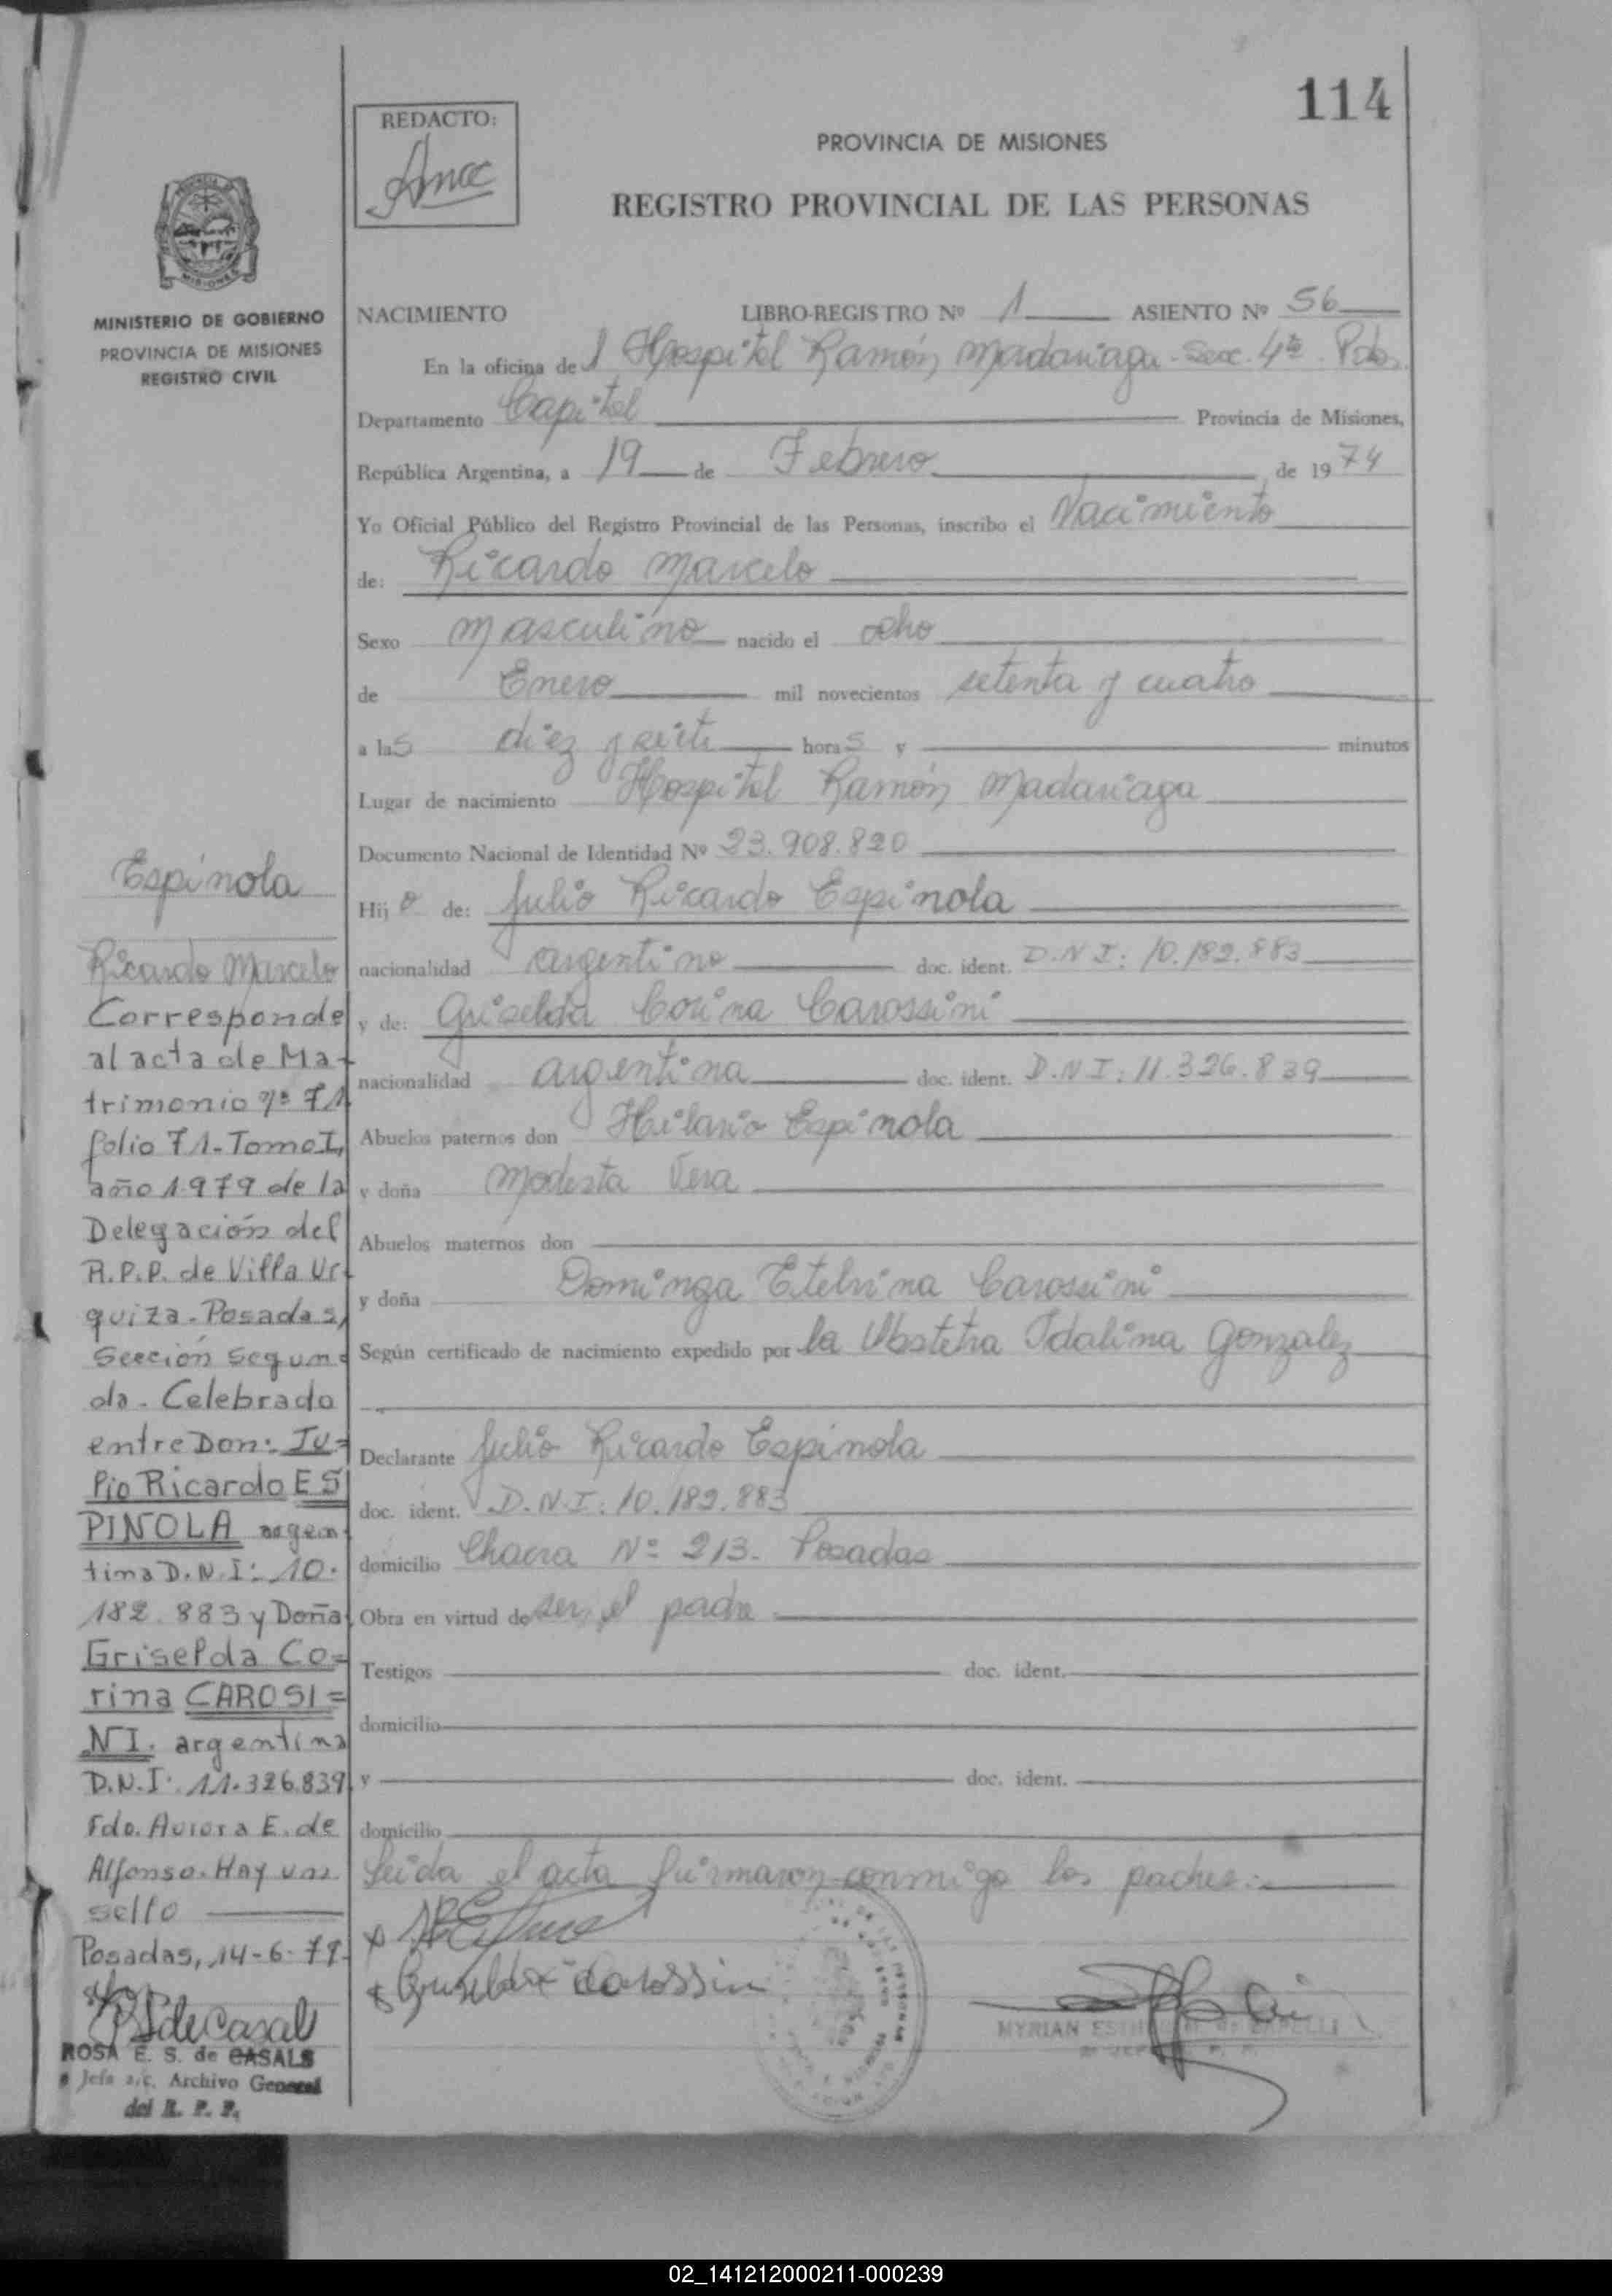 114
REDACTO:
PROVINCIA DE MISIONES
REGISTRO PROVINCIAL DE LAS PERSONAS
MISIONES
MINISTERIO DE GOBIERNO
PROVINCIA DE MISIONES
REGISTRO CIVIL
NACIMIENTO LIBRO-REGISTRO Nº 1 ASIENTO Nº 56
En la oficina del Hospital Ramón Madariaga - Secc. 4ta. Pdas.
Departamento Capital Provincia de Misiones,
República Argentina, a 19 de Febrero de 1974
Yo Oficial Público del Registro Provincial de las Personas, inscribo el Nacimiento
de: Ricardo Marcelo
Sexo masculino nacido el ocho
de Enero mil novecientos setenta y cuatro
a las diez y siete horas y minutos
Lugar de nacimiento Hospital Ramón Madariaga
Documento Nacional de Identidad Nº 23.908.820
Hijo de: Julio Ricardo Espinola
nacionalidad argentino doc. ident. D.N.I: 10.182.883
y de: Griselda Corina Carossini
nacionalidad argentina doc. ident. D.N.I: 11.326.839
Abuelos paternos don Hilario Espinola
y doña Modesta Vera
Abuelos maternos don
y doña Dominga Etelvina Carossini
Según certificado de nacimiento expedido por la Obstetra Idalina Gonzalez
Declarante Julio Ricardo Espinola
doc. ident. D.N.I: 10.182.883
domicilio Chacra Nº 213. Posadas
Obra en virtud de ser el padre
Testigos doc. ident.
domicilio
y doc. ident.
domicilio
Leida el acta firmaron conmigo los padres:
Griselda Carossini
MYRIAN
Espinola
Ricardo Marcelo
Corresponde
al acta de Ma-
trimonio nº 71
folio 71-Tomo I,
año 1979 de la
Delegación del
R.P.P. de Villa Ur-
quiza-Posadas,
Sección Segun=
da - Celebrado
entre Don: Ju=
lio Ricardo ES
PINOLA argen-
tina D.N.I: 10.
182.883 y Doña
Griselda Co=
rina CAROSI=
NI. argentina
D.N.I: 11.326.839
Fdo. Aurora E. de
Alfonso. Hay un
sello
Posadas, 14-6-79
deCasals
ROSA E. S. de CASALS
Jefa a/c. Archivo General
del R. P. P.
02_141212000211-000239